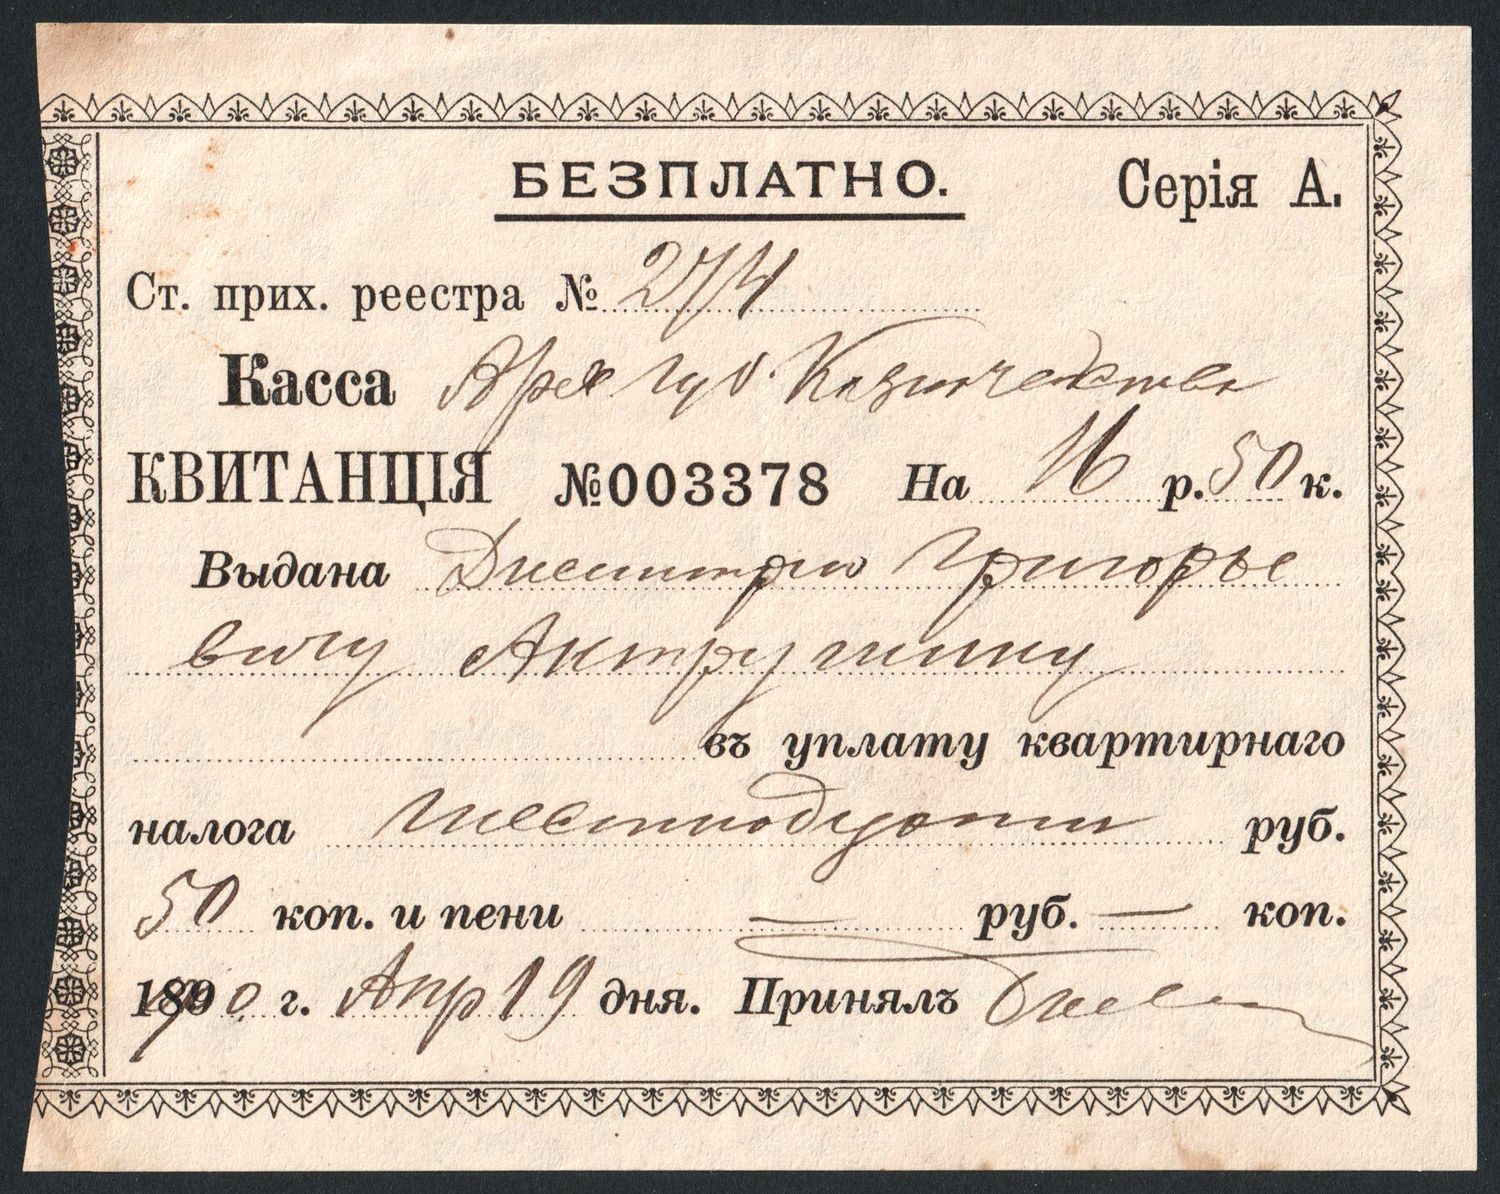 БЕЗПЛАТНО. Серія А.
Ст. прих. реестра № 274
Касса Арх Губ. Казначейства
КВИТАНЦІЯ №003378 На 16 р. 50 к.
Выдана Дмитрию Григорье
вичу
въ уплату квартирнаго
налога шестнадцать руб.
50 коп. и пени — руб. — коп.
1900 г. Апр 19 дня. Принялъ